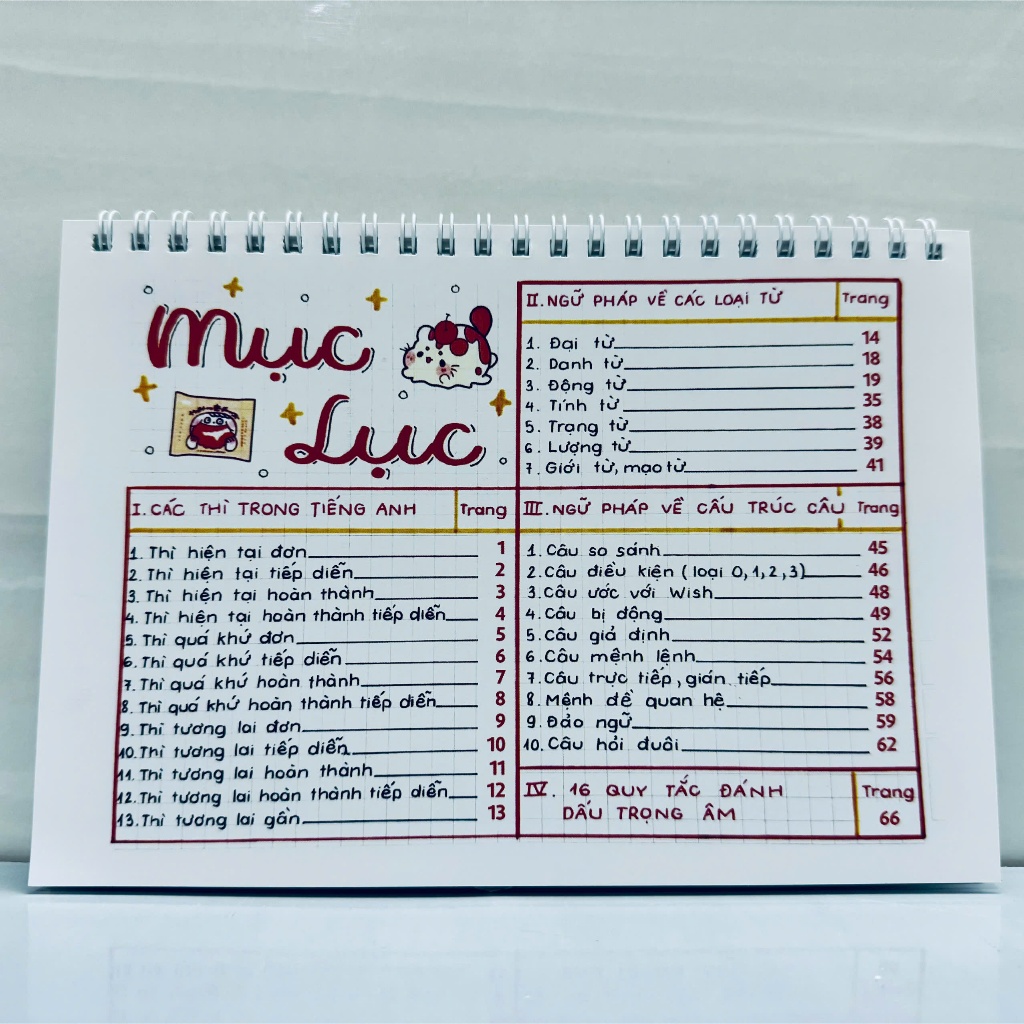 Mục
Lục
I. CÁC THÌ TRONG TIẾNG ANH Trang
1. Thì hiện tại đơn 1
2. Thì hiện tại tiếp diễn 2
3. Thì hiện tại hoàn thành 3
4. Thì hiện tại hoàn thành tiếp diễn 4
5. Thì quá khứ đơn 5
6. Thì quá khứ tiếp diễn 6
7. Thì quá khứ hoàn thành 7
8. Thì quá khứ hoàn thành tiếp diễn 8
9. Thì tương lai đơn 9
10. Thì tương lai tiếp diễn 10
11. Thì tương lai hoàn thành 11
12. Thì tương lai hoàn thành tiếp diễn 12
13. Thì tương lai gần 13
II. NGỮ PHÁP VỀ CÁC LOẠI TỪ Trang
1. Đại từ 14
2. Danh từ 18
3. Động từ 19
4. Tính từ 35
5. Trạng từ 38
6. Lượng từ 39
7. Giới từ, mạo từ 41
III. NGỮ PHÁP VỀ CẤU TRÚC CÂU Trang
1. Câu so sánh 45
2. Câu điều kiện (loại 0,1,2,3) 46
3. Câu ước với Wish 48
4. Câu bị động 49
5. Câu giả định 52
6. Câu mệnh lệnh 54
7. Câu trực tiếp, gián tiếp 56
8. Mệnh đề quan hệ 58
9. Đảo ngữ 59
10. Câu hỏi đuôi 62
IV. 16 QUY TẮC ĐÁNH Trang
DẤU TRỌNG ÂM 66